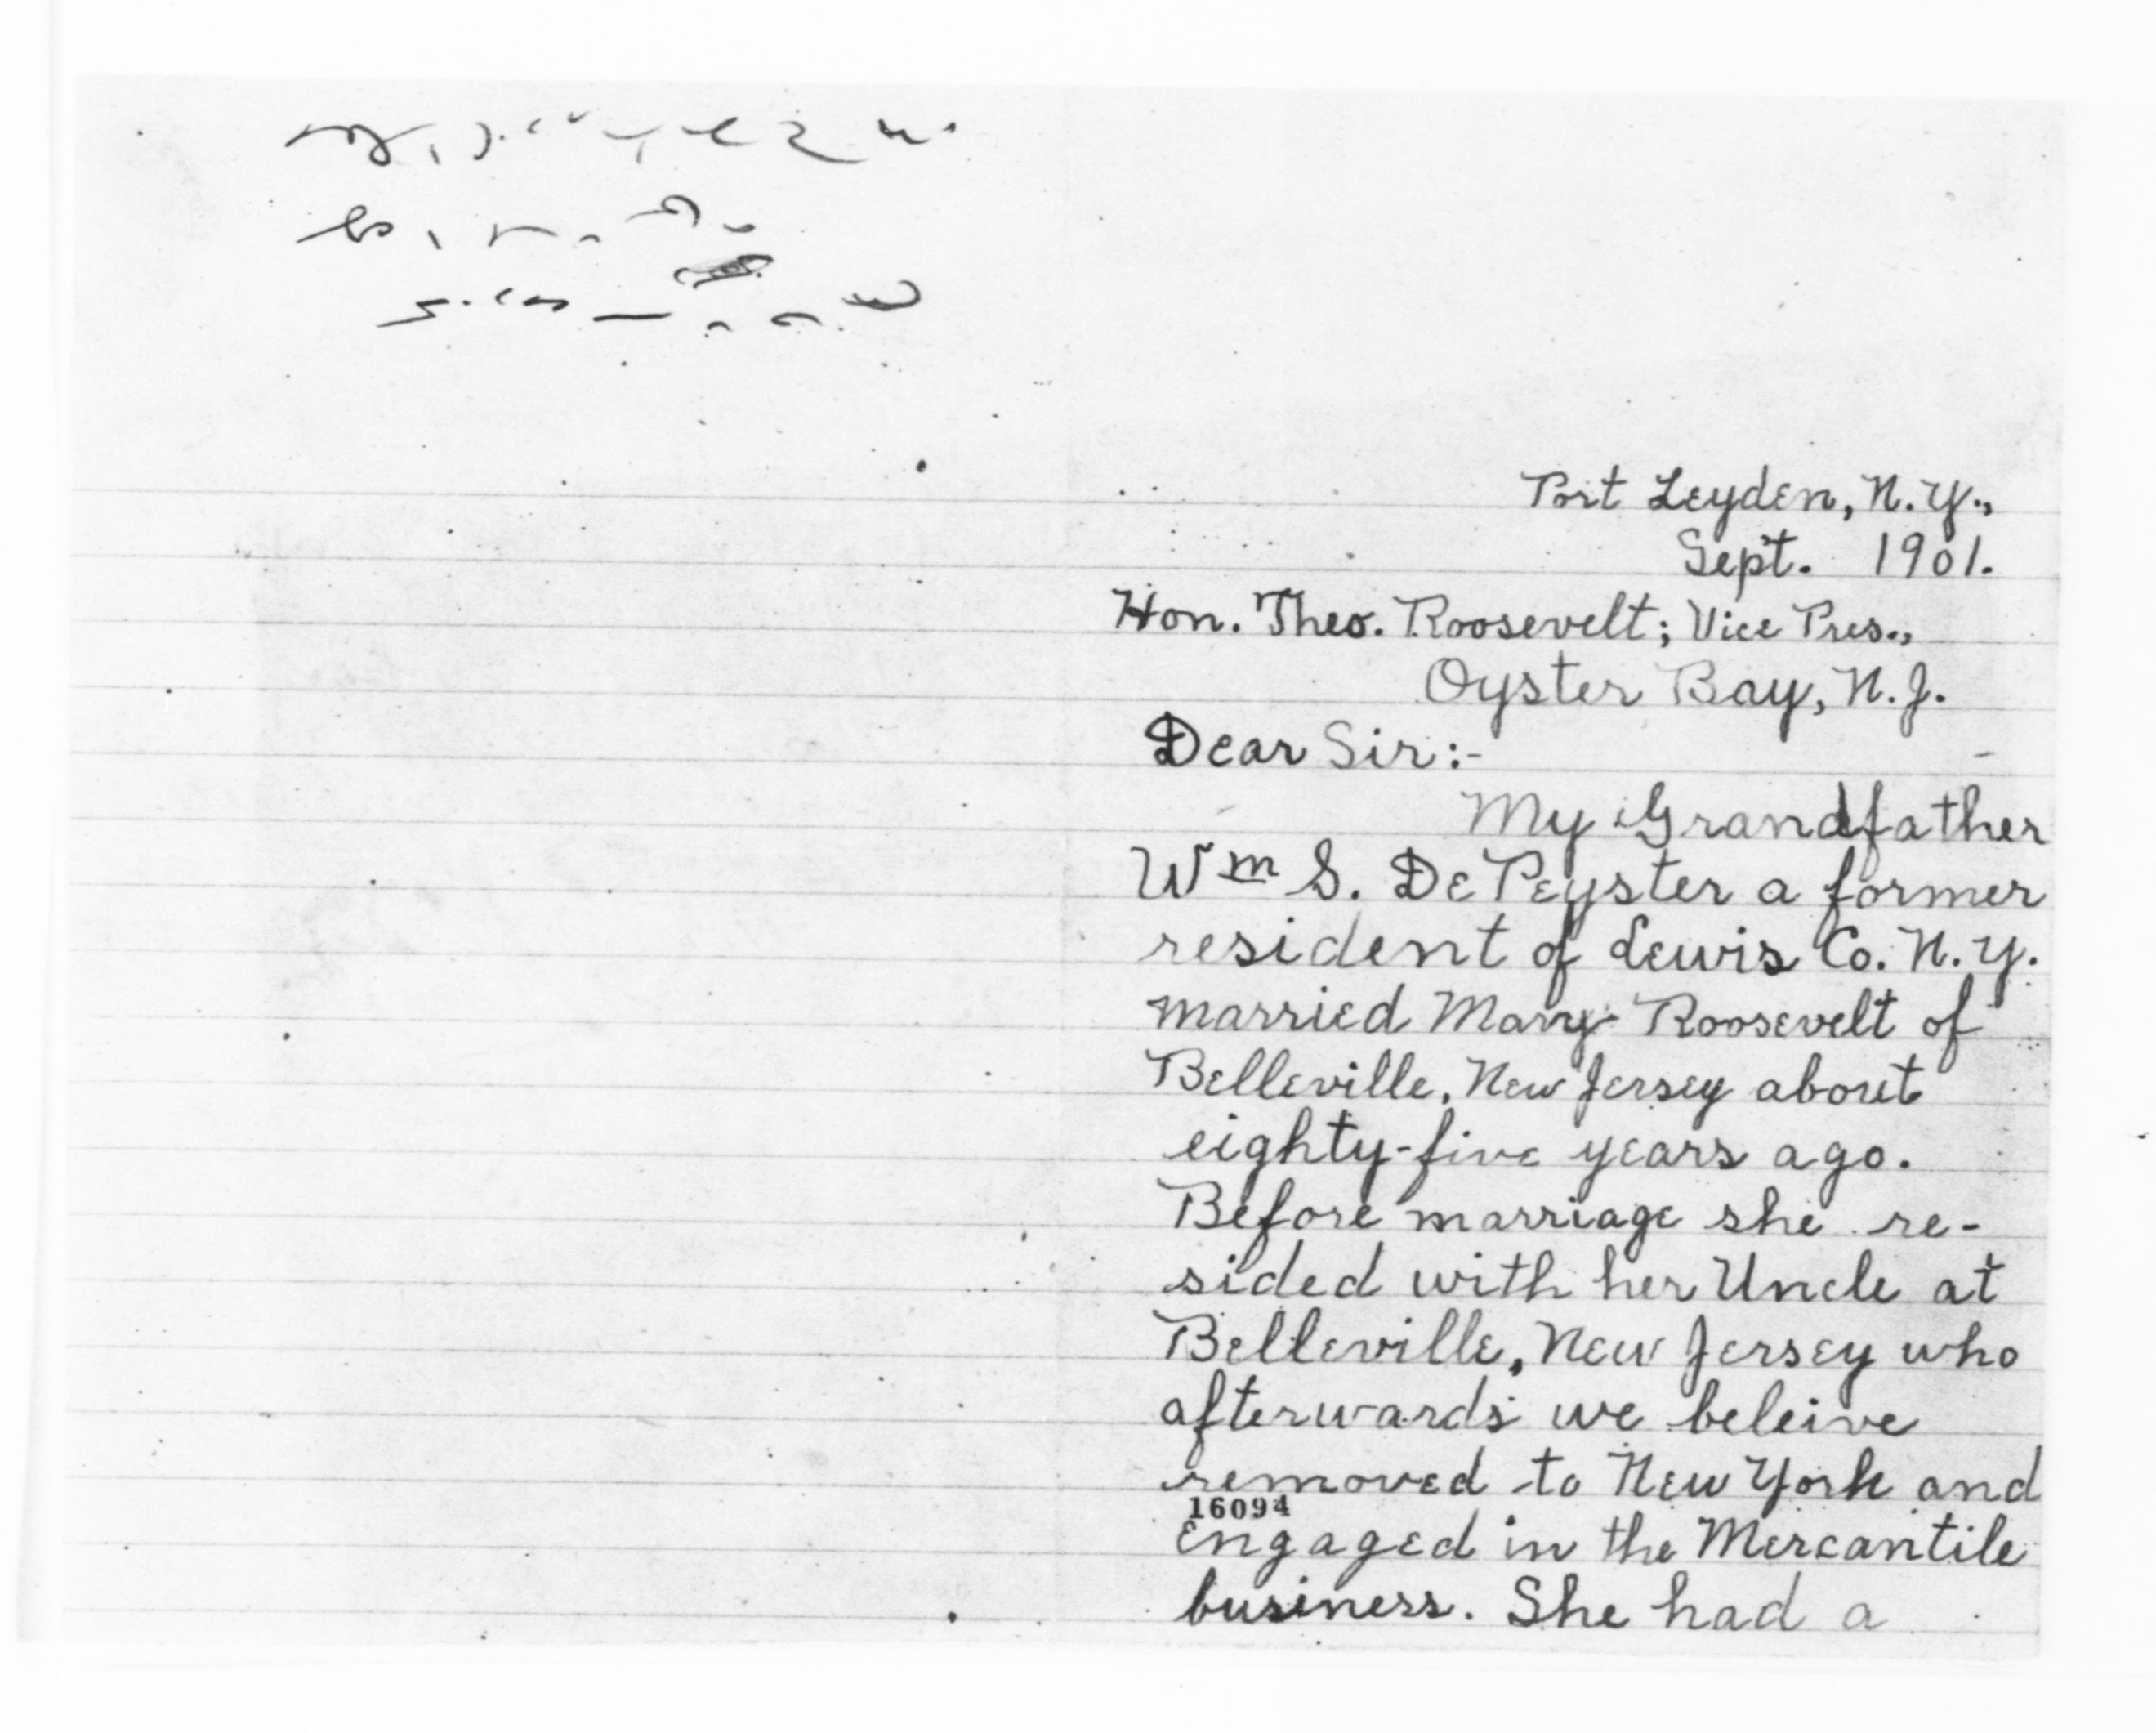 Port Leyden, N.Y.,
Sept. 1901.
Hon. Theo. Roosevelt; Vice Pres.,
Oyster Bay, N.J.
Dear Sir:-
My Grandfather
Wm S. DePeyster a former
resident of Lewis Co. N.Y.
married Mary Roosevelt of
Belleville, New Jersey about
eighty-five years ago.
Before marriage she re-
sided with her Uncle at
Belleville, New Jersey who
afterwards we beleive
removed to New York and
16094
Engaged in the Mercantile
business. She had a